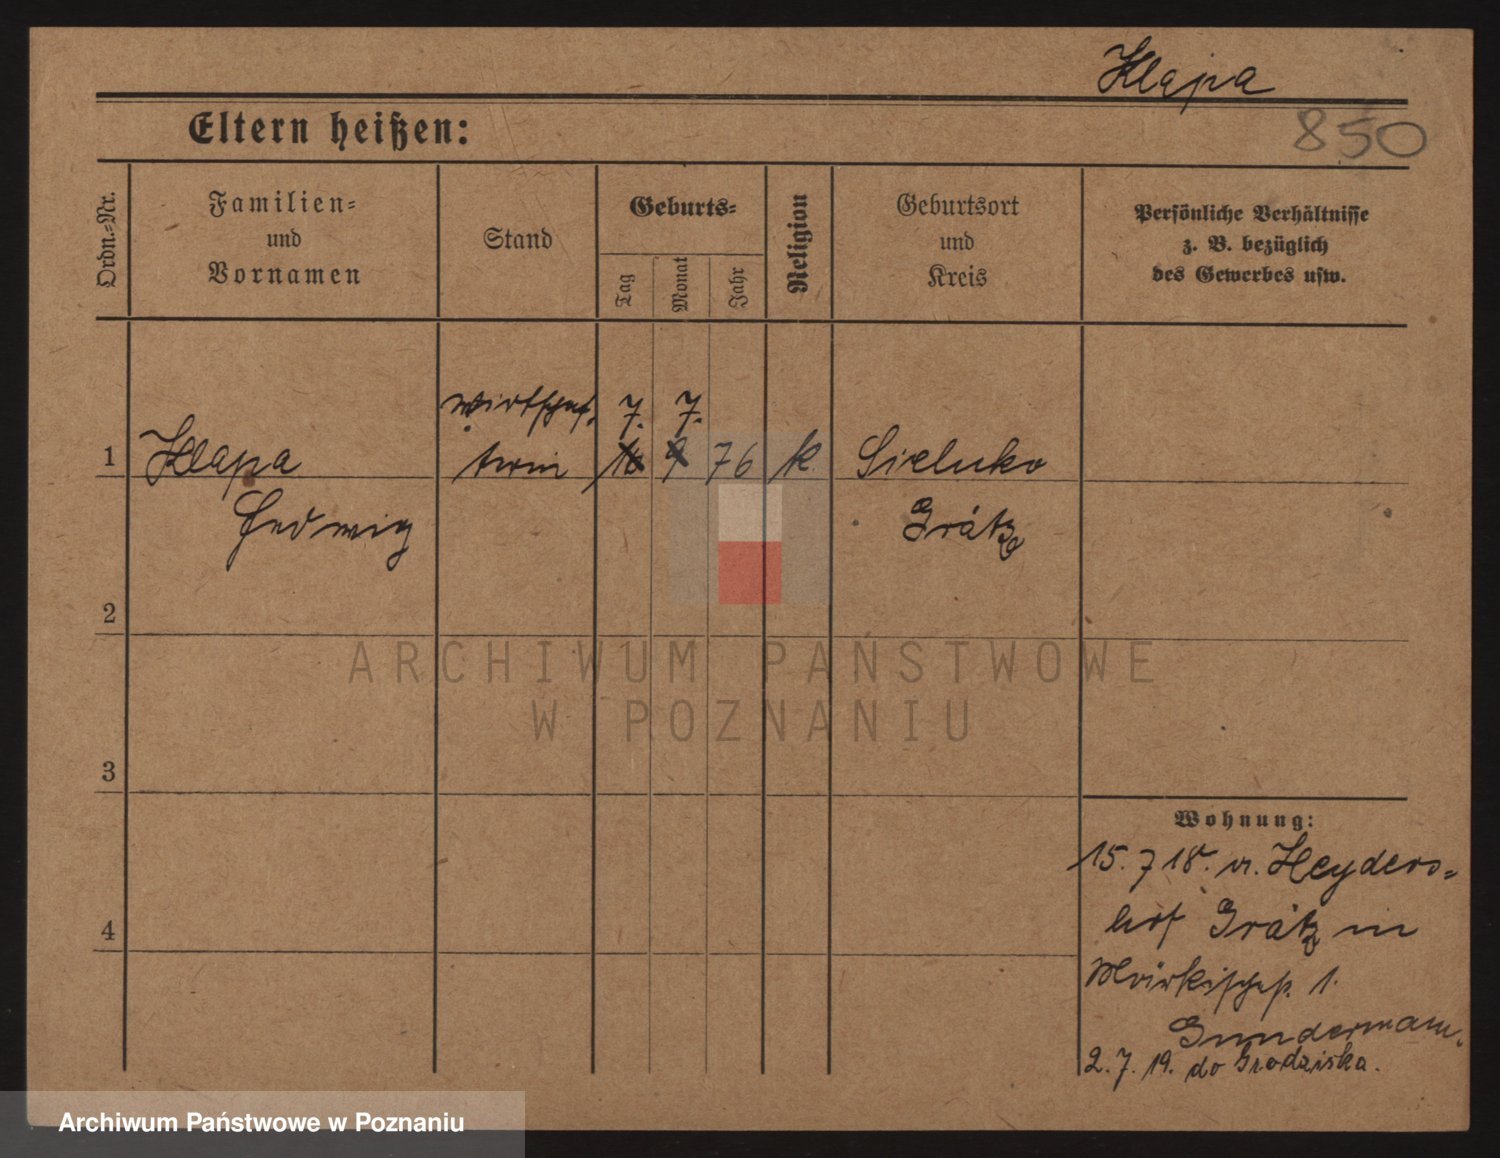 Klapa
850
Eltern heißen:
Ordn.-Nr.
Familien-
und
Vornamen
Stand
Geburts-
Tag
Monat
Jahr
Religion
Geburtsort
und
Kreis
Persönliche Verhältnisse
z. B. bezüglich
des Gewerbes usw.
wirtschaf- 7. 7.
1 Klapa terin 76 k. Sielinko
Hedwig Grätz
2
ARCHIWUM PAŃSTWOWE
W POZNANIU
3
Wohnung:
15. 7 18. v. Heyders-
hof Grätz in
4
Märkischestr. 1.
Gundermann.
2. 7. 19. do Grodziska.
Archiwum Państwowe w Poznaniu